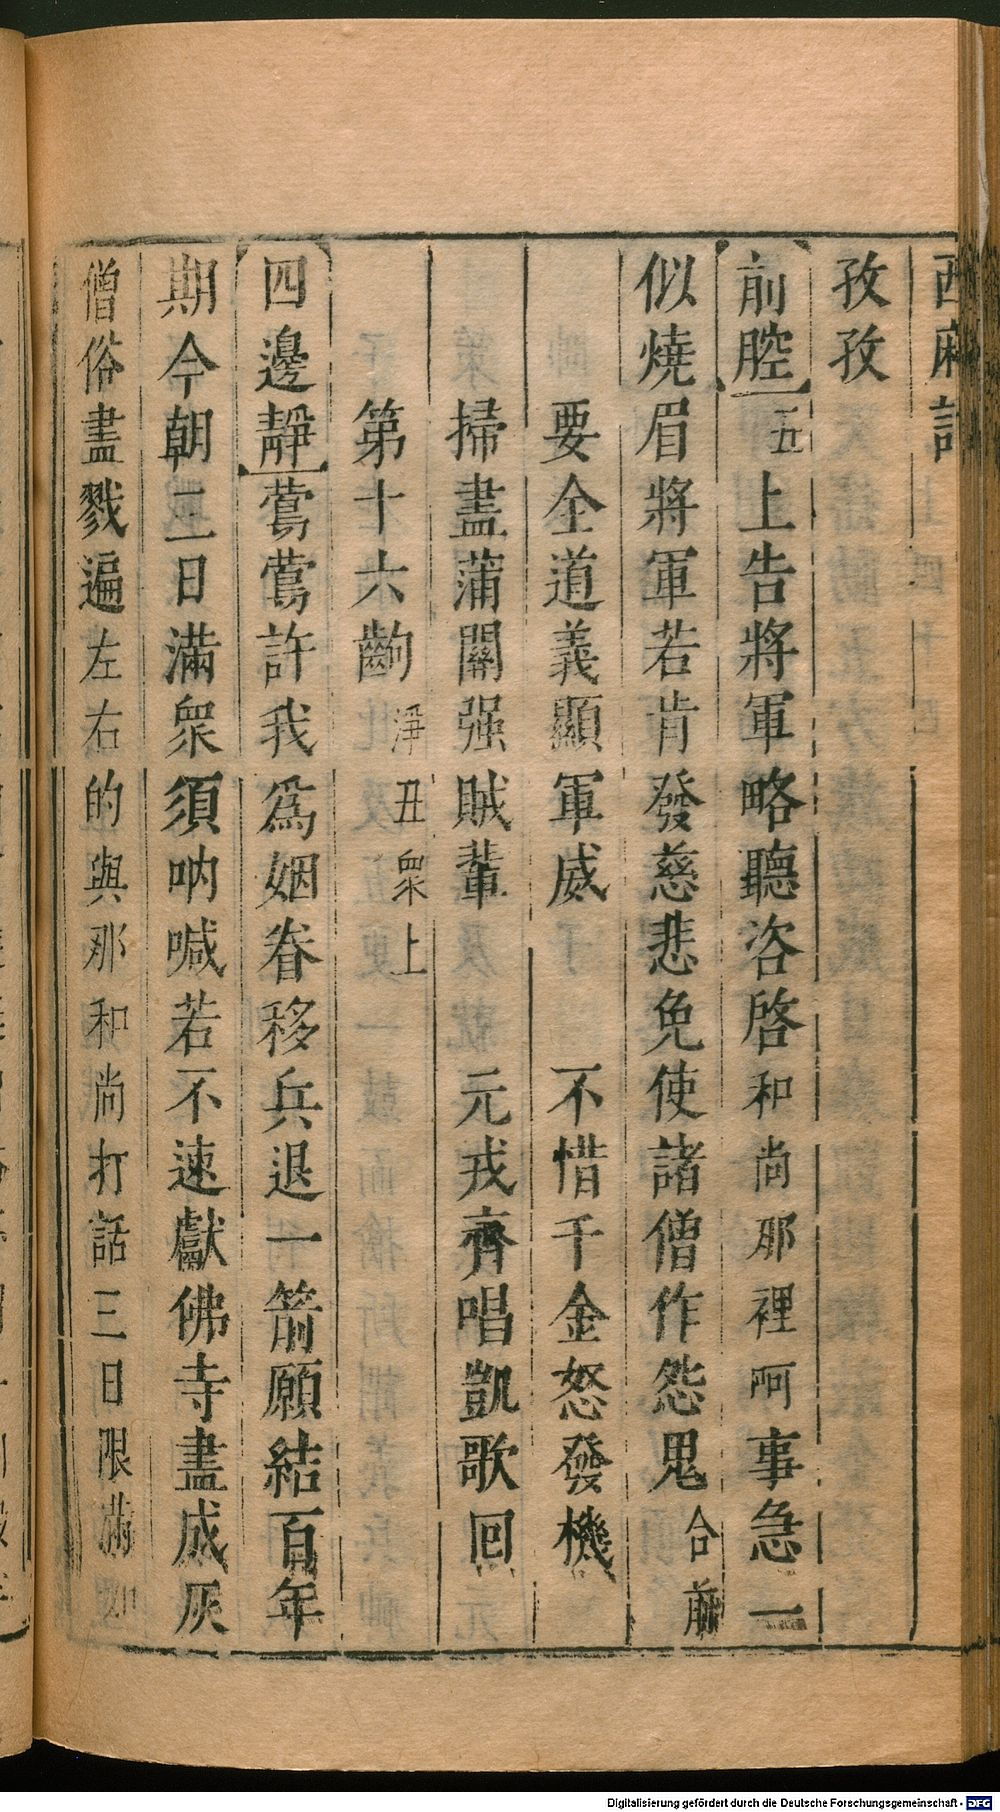 西廂記
孜孜
前腔 丑上告將軍略聽咨啓和尚那裡阿事急一
似燒眉將軍若肯發慈悲免使諸僧作怨鬼合前
要全道義顯軍威　不惜千金怒發機
掃盡蒲關强賊輩　元戎齊唱凱歌回
第十六齣 淨丑衆上
四邊靜 鶯鶯許我爲姻眷移兵退一箭願結百年
期今朝三日滿衆須吶喊若不速獻佛寺盡成灰
僧俗盡戮遍左右的與那和尚打話三日限滿如
Digitalisierung gefördert durch die Deutsche Forschungsgemeinschaft - DFG